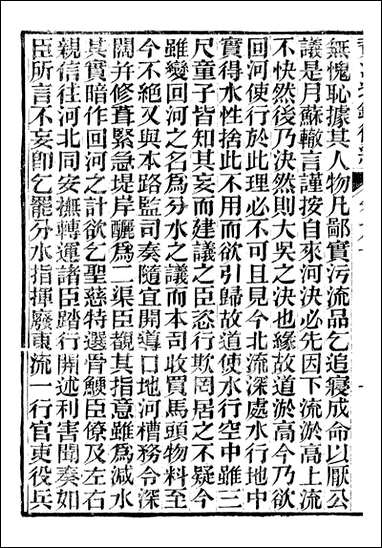 無愧恥據其人物凡鄙實污流品乞追寢成命以厭公
議是月蘇轍言謹按自來河決必先因下流淤高上流
不快然後乃決然則大吳之決也緣故道淤高今乃欲
回河使行於此理必不可且見今北流深處水行地中
實得水性捨此不用而欲引歸故道使水行空中雖三
尺童子皆知其妄而建議之臣恣行欺罔居之不疑今
雖變回河之名為分水之議而本司收買馬頭物料至
今不絕又與本路監司奏隨宜開導口地河槽務令深
闊并修葺緊急堤岸釃為二渠臣觀其指意雖為減水
其實暗作回河之計欲乞聖慈特選骨鯁臣僚及左右
親信往河北同安撫轉運諸臣踏行開述利害聞奏如
臣所言不妄卽乞罷分水指揮廢東流一行官吏役兵